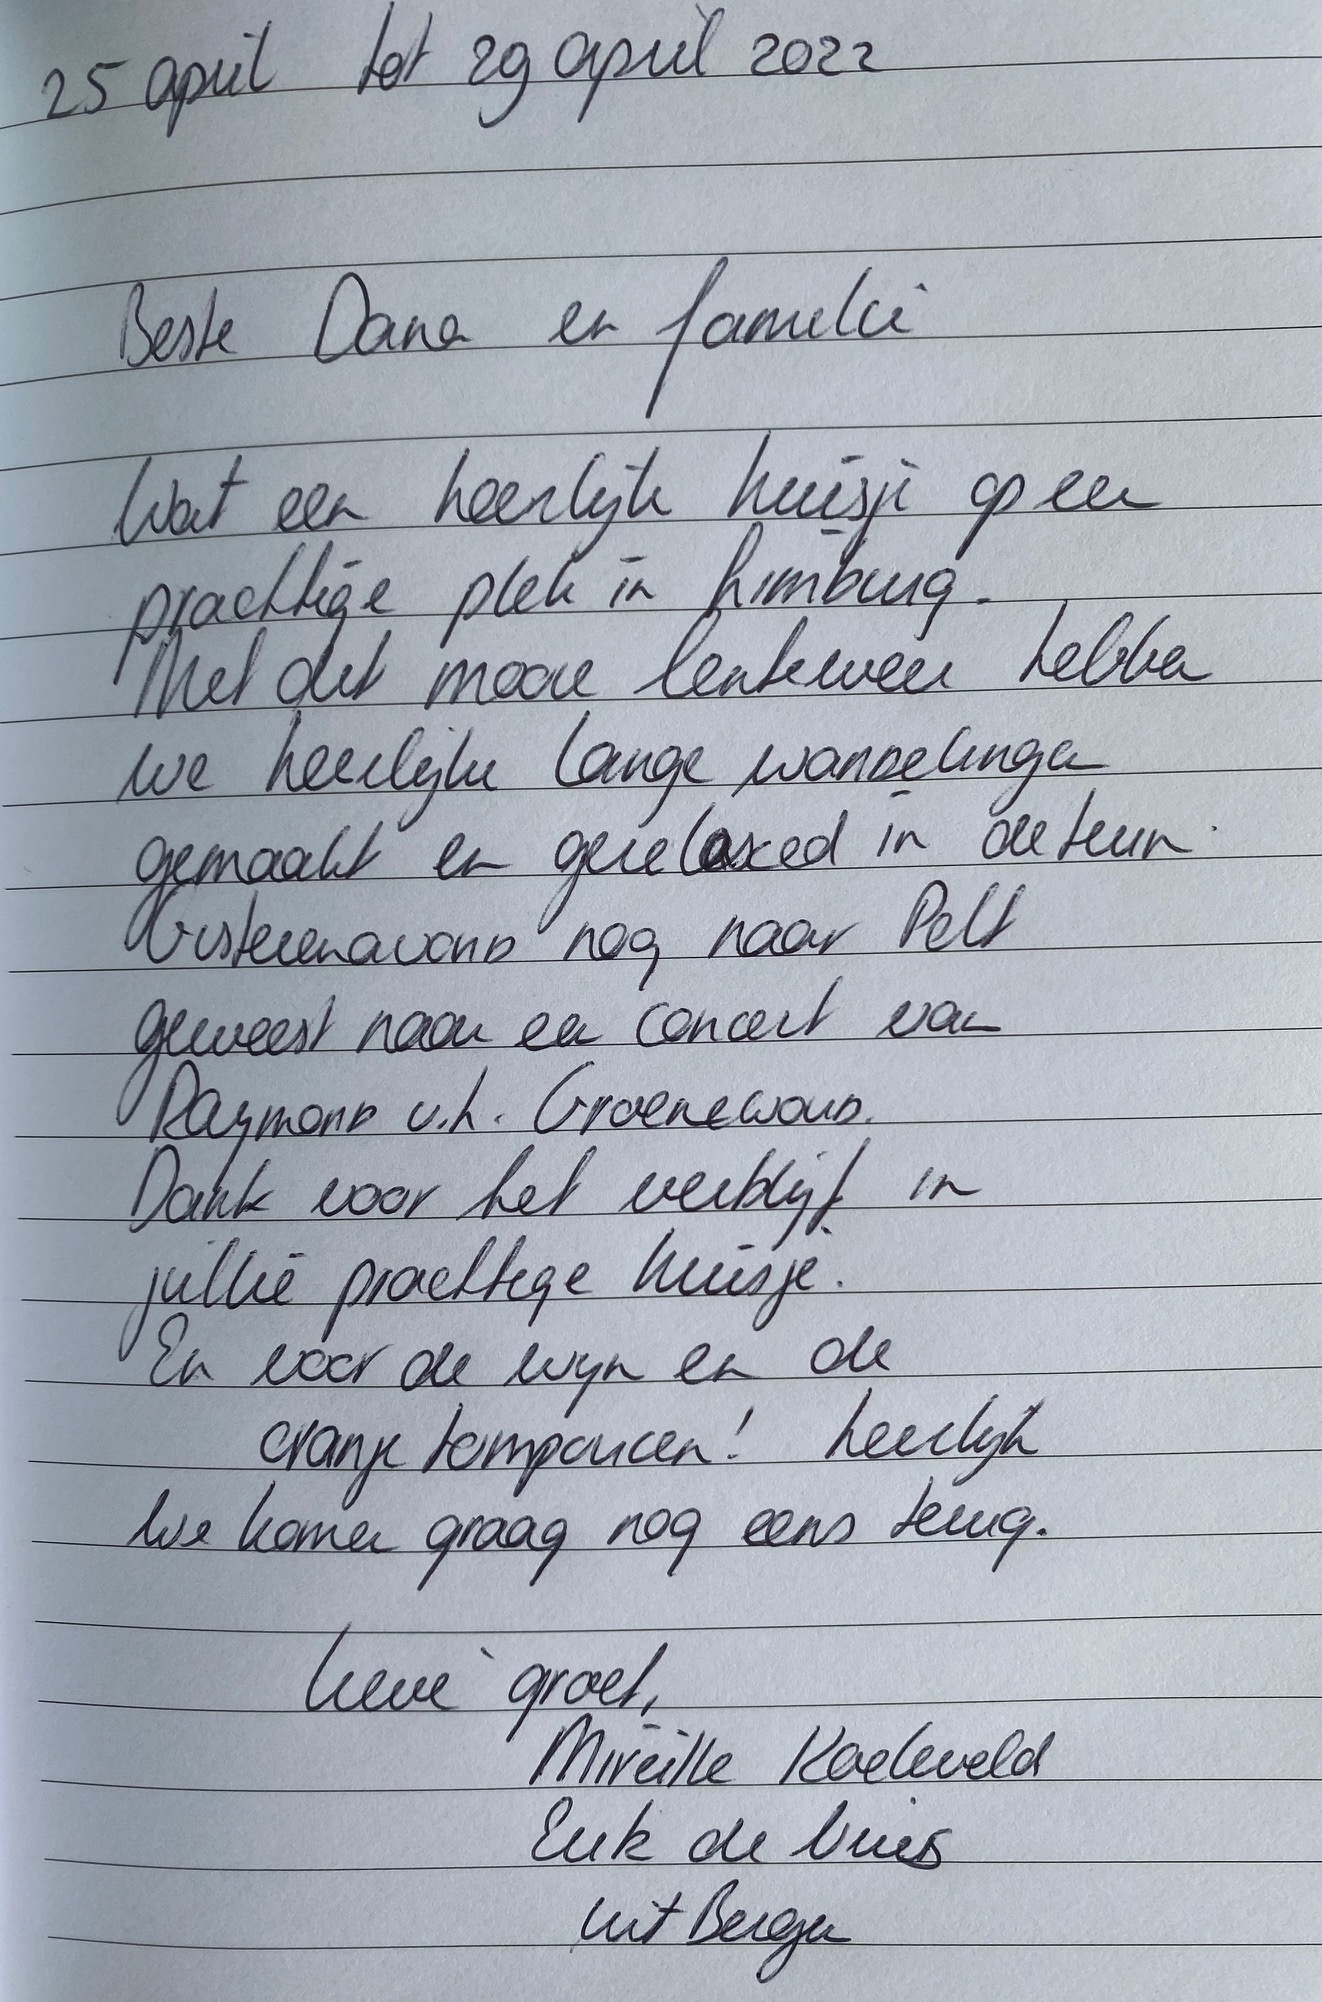 25 april tot 29 april 2022
Beste Dana en familie
Wat een heerlijk huisje op een
prachtige plek in Limburg.
Met dit mooie lenteweer hebben
we heerlijke lange wandelingen
gemaakt en gerelaxed in de tuin.
Gisterenavond nog naar Pelt
geweest naar een concert van
Raymond v.h. Groenewoud.
Dank voor het verblijf in
jullie prachtige huisje.
En voor de wijn en de
oranje tompoucen! heerlijk
We komen graag nog eens terug.
Lieve groet,
Mireille Koeleveld
Erik de Vries
uit Bergen